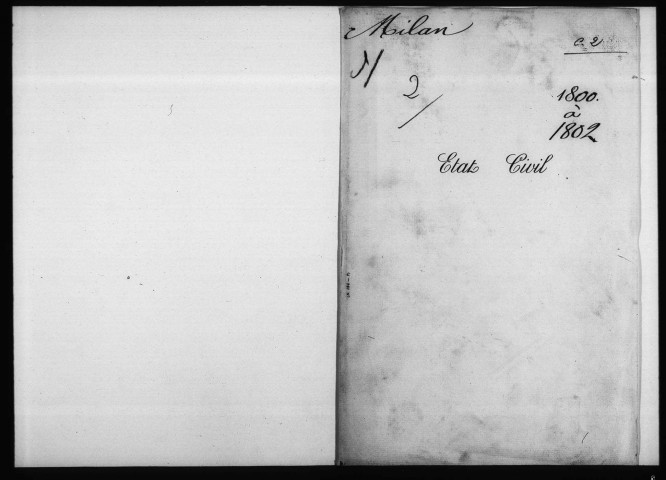 Milan
C. 2
2
1800.
à
1802
Etat Civil